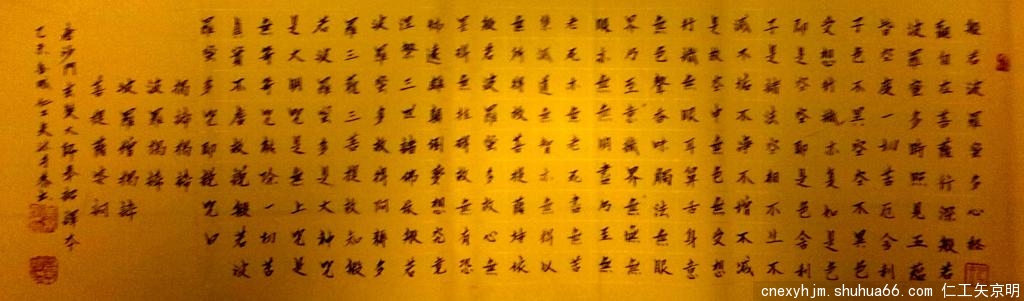 般若波羅蜜多心經
觀自在菩薩行深般若
波羅蜜多時照見五蘊
皆空度一切苦厄舍利
子色不異空空不異色
受想行識亦如是色
即是空即是色舍利
子是諸法空相不生不
滅不垢不淨不增不減
是故空中無色無受想
行識無眼耳鼻舌身意
無色聲香味觸法無眼
界乃至無意識界無無
明亦無無明盡乃至無
老死亦無老死盡無苦
集滅道無智亦無得以
無所得故菩提薩埵依
般若波羅蜜多故心無
罣礙無罣礙故無有恐
怖遠離顛倒夢想究竟
涅槃三世諸佛依般若
波羅蜜多故得阿耨多
羅三藐三菩提故知般
若波羅蜜多是大神咒
是大明咒是無上咒是
無等等咒能除一切苦
真實不虛故說般若波
羅蜜多咒即說咒曰
揭諦揭諦
波羅揭諦
波羅僧揭諦
菩提薩婆訶
唐沙門玄奘大師奉詔譯本
乙未 仁工矢京
cnexyhjm.shuhua66.com 仁工矢京明